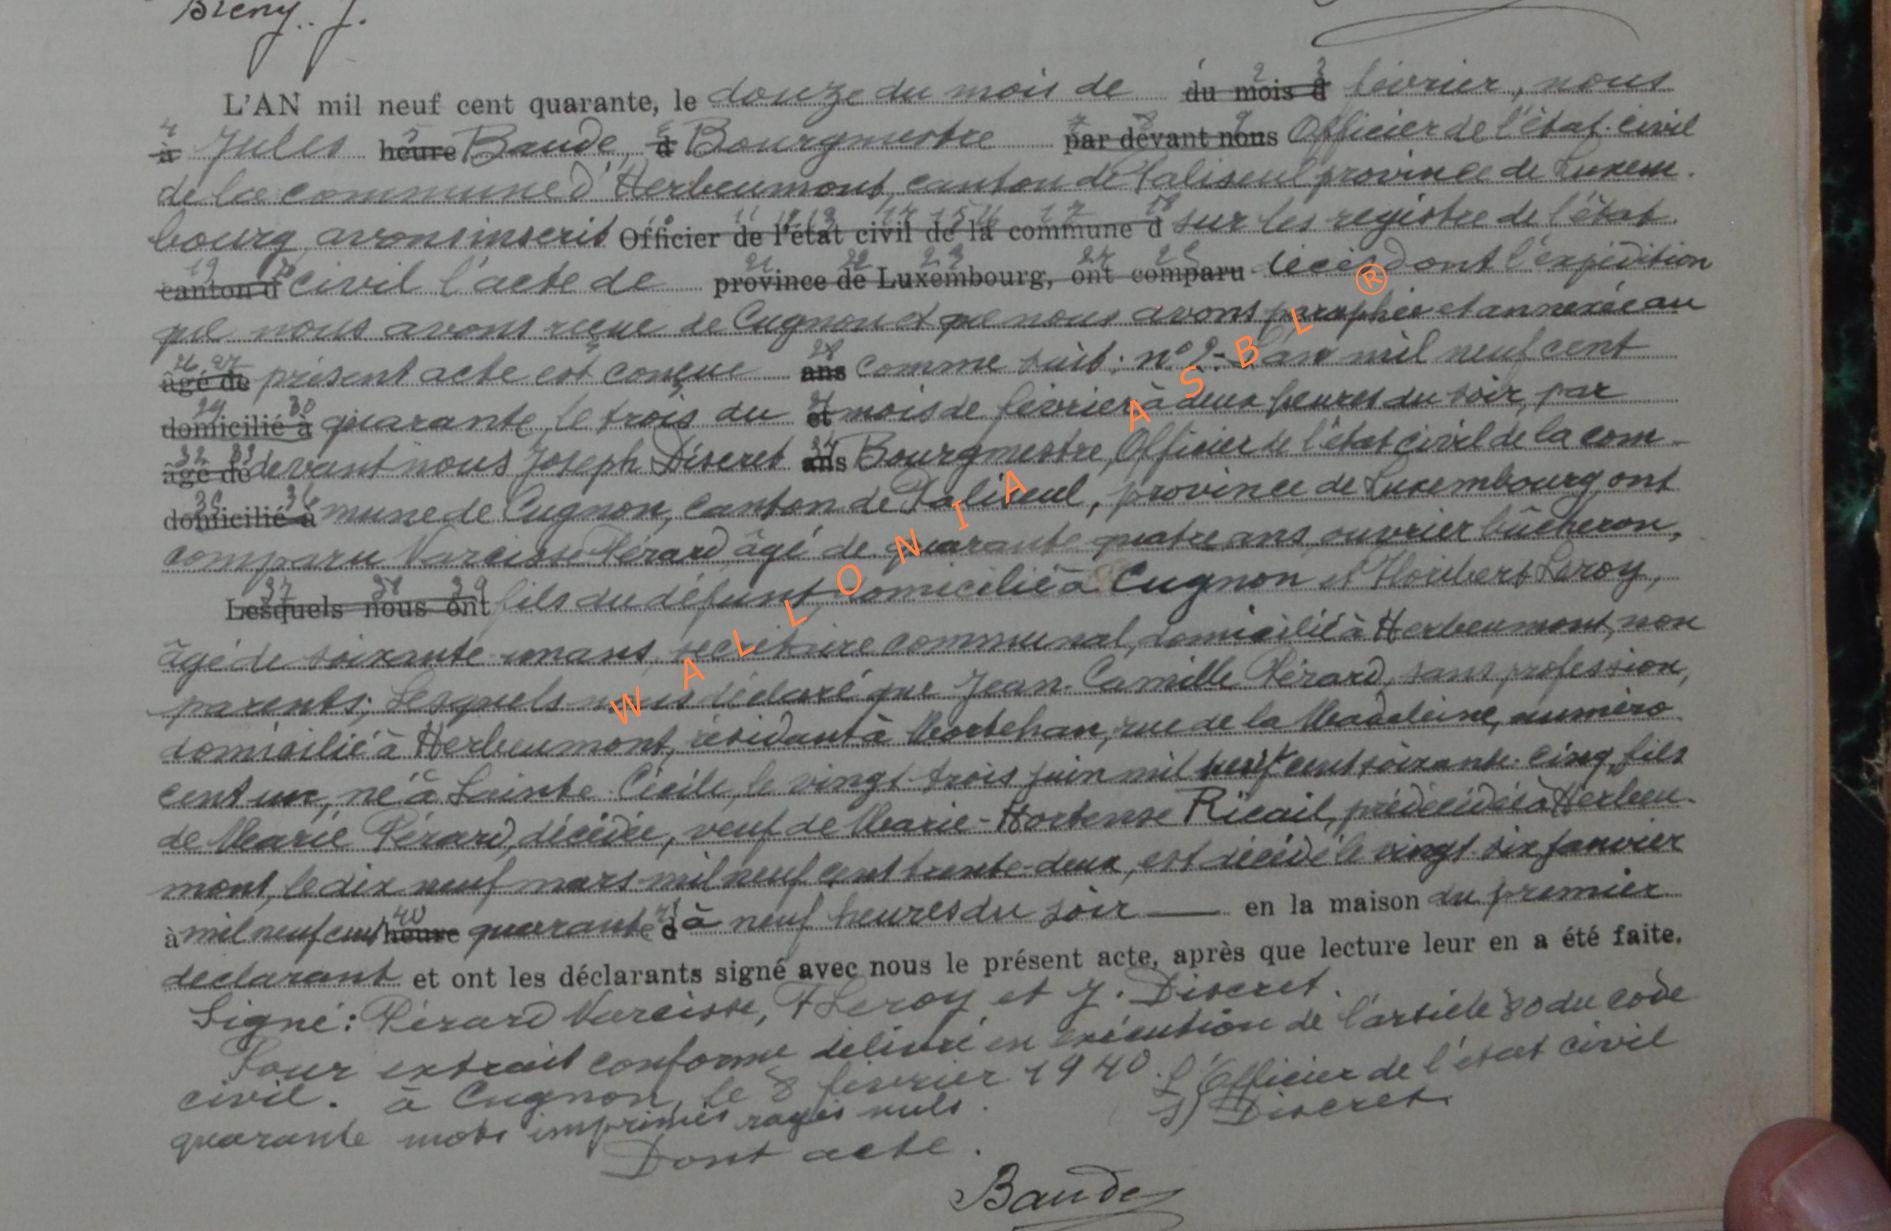 Bieny. J.
L'AN mil neuf cent quarante, le douze du mois de du mois d février, nous
à Jules heure Baude, d Bourgmestre par devant nous Officier de l'état-civil
de la commune d'Herbeumont, canton de Paliseul province de Luxem-
bourg, avons inscrit Officier de l'état civil de la commune d sur les registre de l'état
canton d civil l'acte de province de Luxembourg, ont comparu décès dont l'expédition
que nous avons reçue de Cugnon et que nous avons paraphée et annexée au
âgé de présent acte est conçue ans comme suit: n° 2.- L'an mil neuf cent
domicilié à quarante, le trois du et mois de février à deux heures du soir, par
âgé de devant nous Joseph Discret ans Bourgmestre, Officier de l'état civil de la com-
domicilié à mune de Cugnon, canton de Paliseul, province de Luxembourg ont
comparu Narcisse Pérard, âgé de quarante quatre ans, ouvrier bûcheron,
Lesquels nous ont fils du défunt, domicilié à Cugnon et Floribert Leroy,
âgé de soixante-un ans, secrétaire communal, domicilié à Herbeumont, non
parents; Lesquels nous déclaré que Jean-Camille Pérard, sans profession,
domicilié à Herbeumont, résidant à Mortehan, rue de la Madeleine, numéro
cent un, né à Sainte-Cécile, le vingt trois juin mil cent soixante-cinq, fils
de Marie Pérard, décédée, veuf de Marie-Hortense Ricail, prédécédée à Herbeu-
mont, le dix neuf mars mil neuf cent trente-deux, est décédé le vingt six janvier
à mil neuf cent heure quarante d à neuf heures du soir — en la maison du premier
déclarant et ont les déclarants signé avec nous le présent acte, après que lecture leur en a été faite.
Signé: Pérard Narcisse, F Leroy et J. Discret.
Pour extrait conforme délivré en exécution de l'article 80 du code
civil. à Cugnon, le 8 février 1940. L'Officier de l'état civil
quarante mots imprimés rayés nuls. s) Discret.
Dont acte.
Baude
WALLONIA ASBL ®